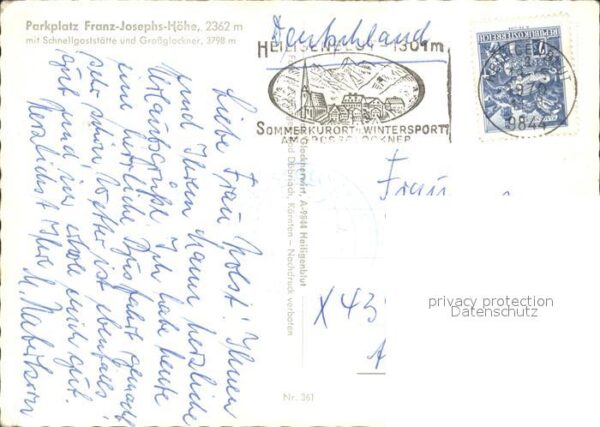 Parkplatz Franz-Josephs-Höhe, 2362 m
mit Schnellgaststätte und Großglockner, 3798 m
Deutschland
HEILIGENBLUT 1301m
SOMMERKURORT u. WINTERSPORT
AM GROSSGLOCKNER
REPUBLIK ÖSTERREICH
9844
Liebe Frau Holst! Ihnen
und Ihrem Mann herzliche
Urlaubsgrüße. Ich habe heute
eine herrliche Busfahrt gemacht
sehr schön, Wetter ist ebenfalls
gut und ich erhole mich gut.
Herzlichst Ihre M.
Glocknerwirt, A-9844 Heiligenblut
Döbriach, Kärnten – Nachdruck verboten
Nr. 361
Frau
X 43
privacy protection
Datenschutz